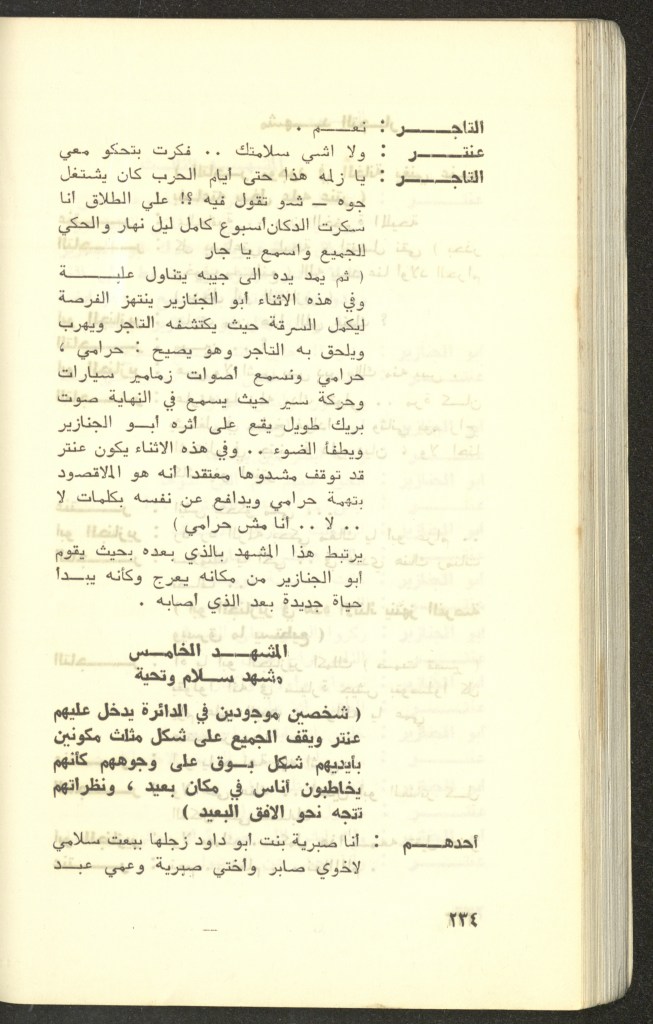 التاجـــــر : نعـــم .
عنتـــــر : ولا اشي سلامتك .. فكرت بتحكو معي
التاجـــــر : يا زلمه هذا حتى ايام الحرب كان يشتغل
جوه ـ شو تقول فيه ؟! علي الطلاق انا
سكرت الدكان اسبوع كامل ليل نهار والحكي
للجميع واسمع يا جار
( ثم يمد يده الى جيبه يتناول علبـــــة
وفي هذه الاثناء ابو الجنازير ينتهز الفرصة
ليكمل السرقة حيث يكتشفه التاجر ويهرب
ويلحق به التاجر وهو يصيح : حرامي ،
حرامي ونسمع اصوات زمامير سيارات
وحركة سير حيث يسمع في النهاية صوت
بريك طويل يقع على اثره أبـو الجنازير
ويطفأ الضوء .. وفي هذه الاثناء يكون عنتر
قد توقف مشدوها معتقدا انه هو المقصود
بتهمة حرامي ويدافع عن نفسه بكلمات لا
.. لا .. انا مش حرامي )
يرتبط هذا المشهد بالذي بعده بحيث يقوم
ابو الجنازير من مكانه يعرج وكأنه يبـدأ
حياة جديدة بعد الذي اصابه .
المشهـــد الخامـس
مشهد ســلام وتحية
( شخصين موجودين في الدائرة يدخل عليهم
عنتر ويقف الجميع على شكل مثلث مكونين
بأيديهم شكل بـوق على وجوههم كأنهم
يخاطبون أناس في مكان بعيد ، ونظراتهم
تتجه نحو الافق البعيد )
أحدهـــم : انا صبرية بنت ابو داود زجلها ببعت سلامي
لاخوي صابر وأختي صبرية وعمي عبـد
٢٣٤